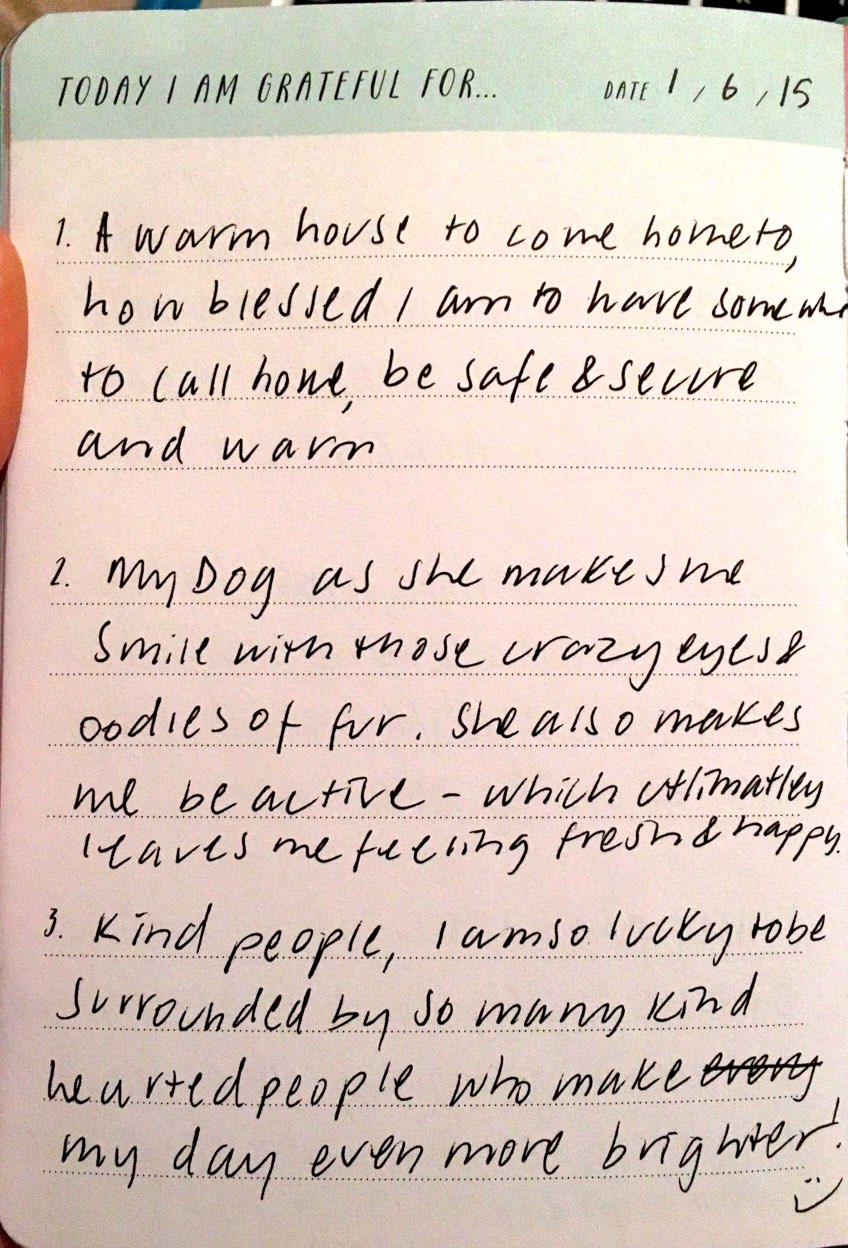 TODAY I AM GRATEFUL FOR... DATE 1 / 6 / 15
1. A warm house to come home to,
how blessed I am to have somewhe
to call home, be safe & secure
and warm
2. My Dog as she makes me
smile with those crazy eyes &
oodles of fur. She also makes
me be active - which ultimatley
leaves me feeling fresh & happy.
3. Kind people, I am so lucky to be
surrounded by so many kind
hearted people who make every
my day even more brighter!